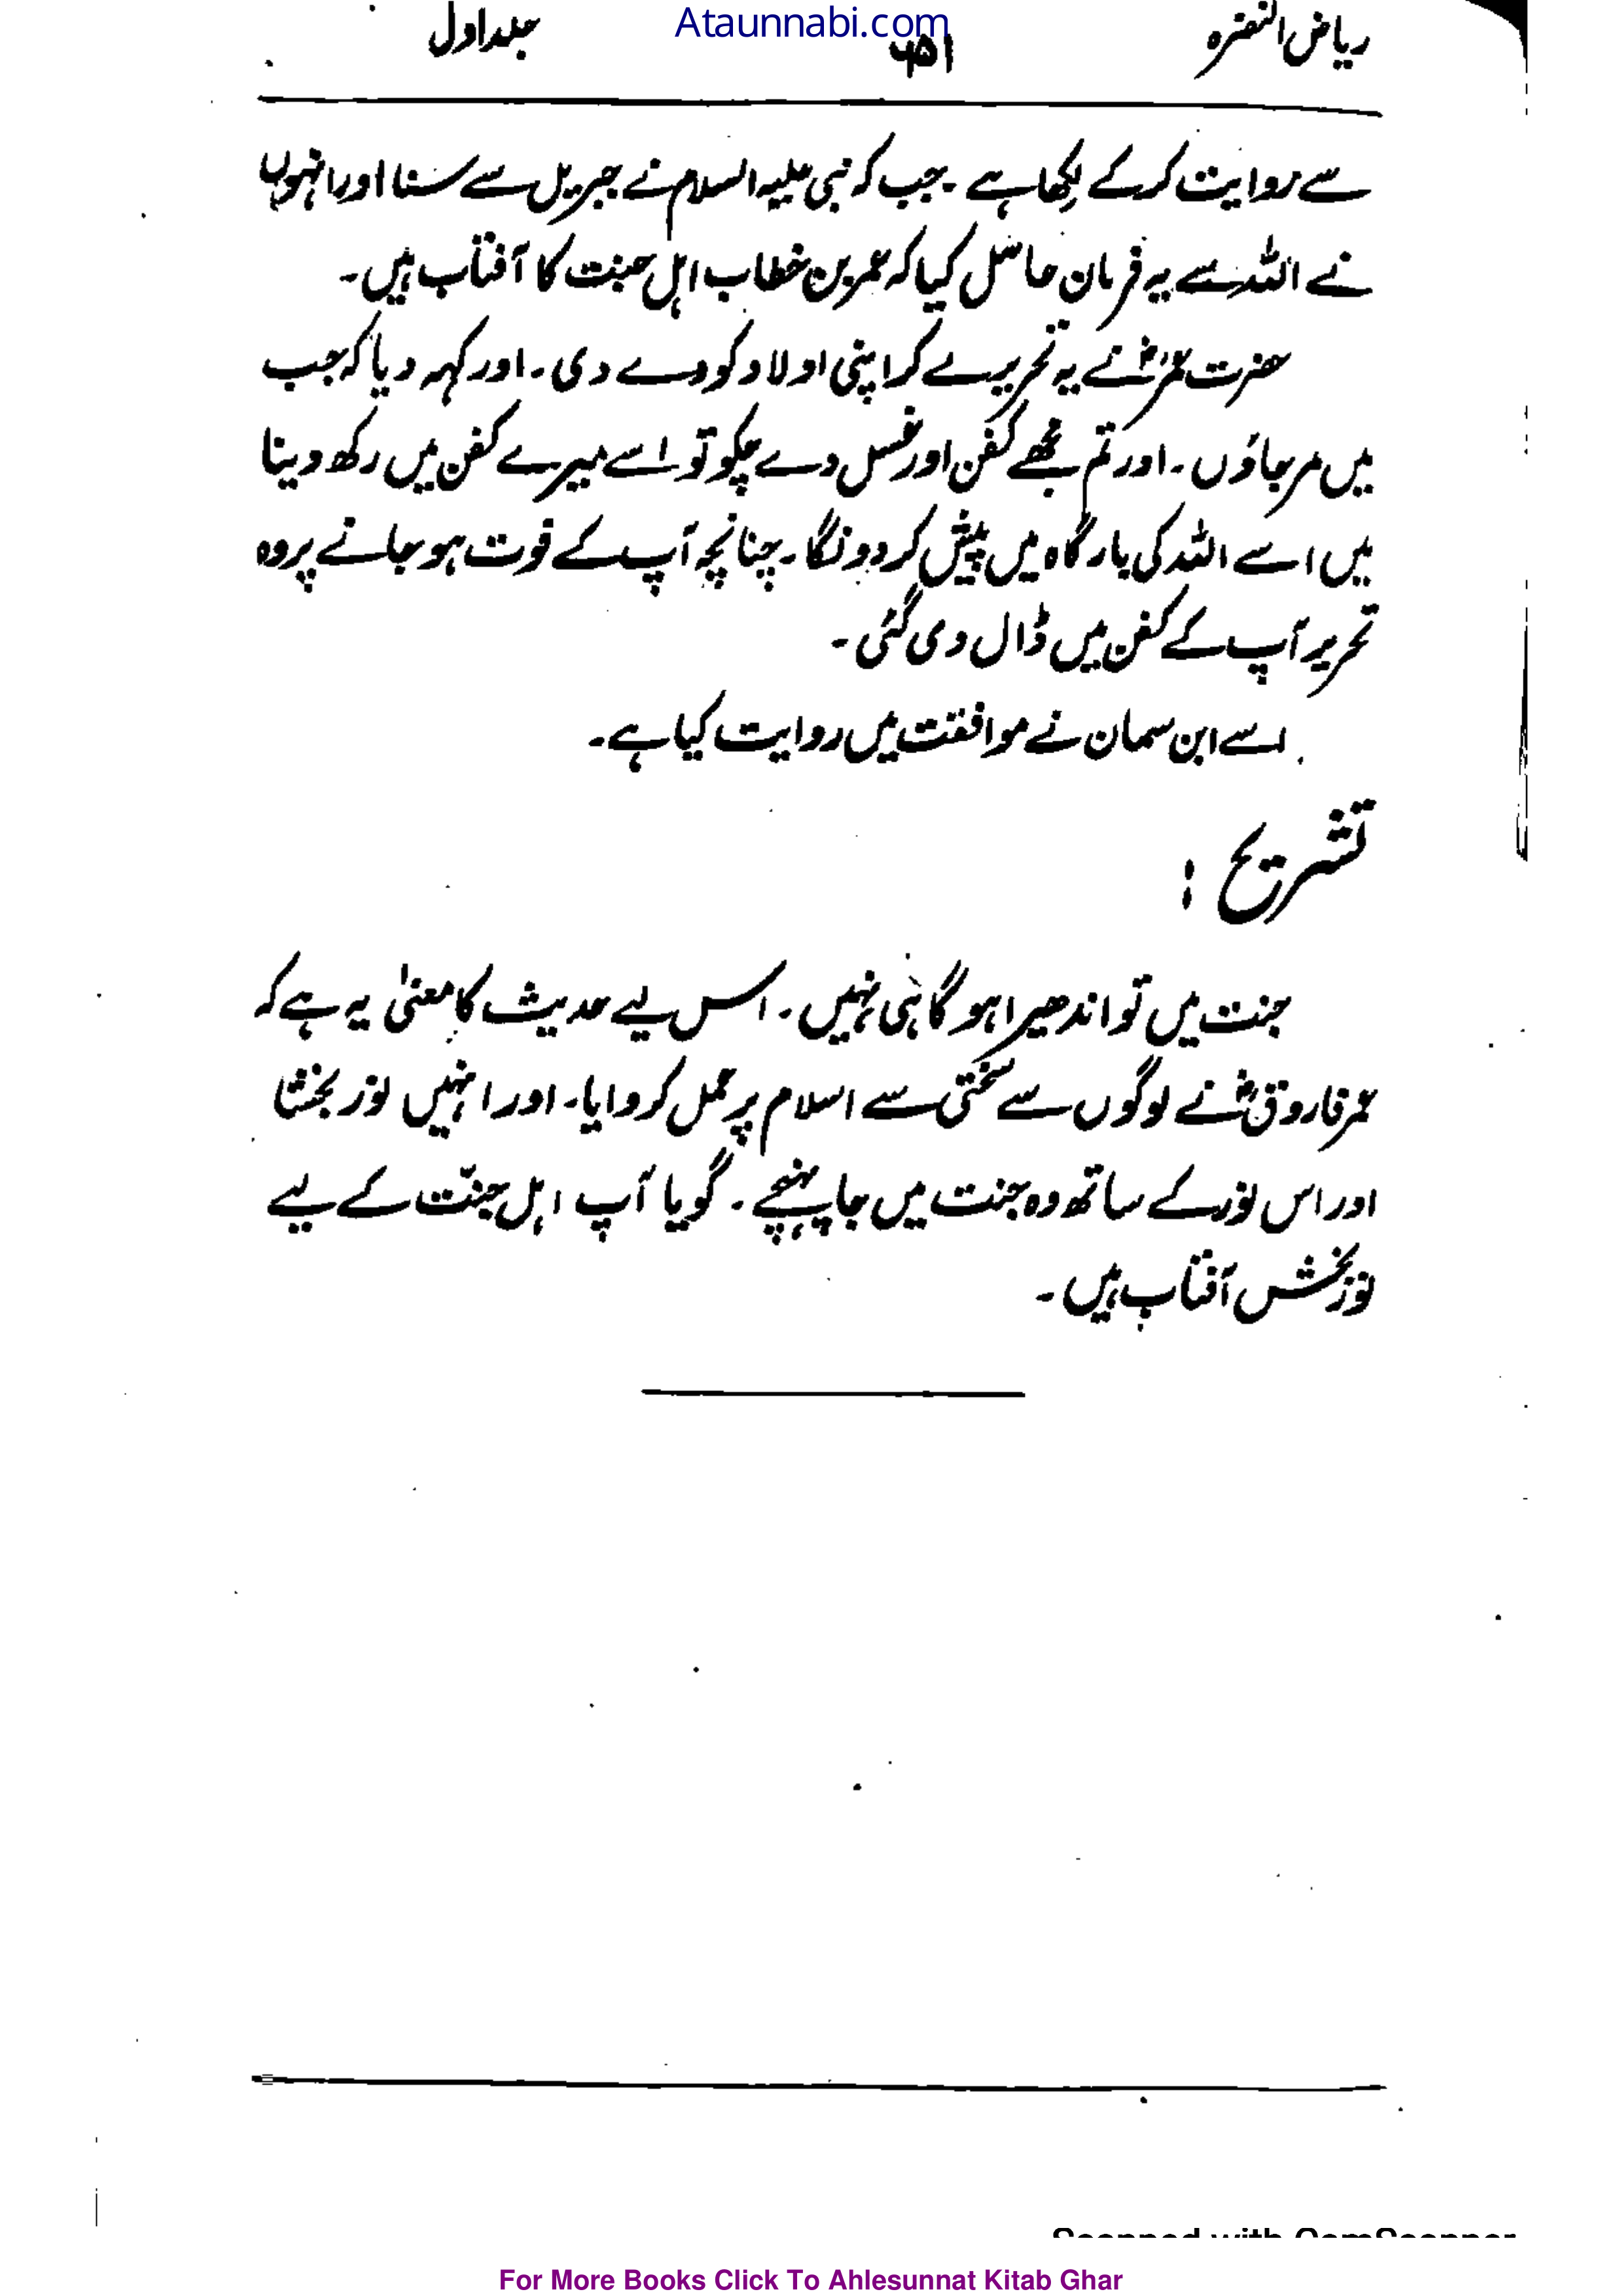 ریاض النضرہ
Ataunnabi.com
۶۵۱
جلد اول
سے روایت کرکے لکھا ہے ۔ جب کہ نبی علیہ السلام نے جبریل سے سنا اور انہوں
نے اللہ سے یہ فرمان حاصل کیا کہ عمر بن خطاب اہل جنت کا آفتاب ہیں۔
حضرت عمرؓ نے یہ تحریر لے کر اپنی اولاد کو دے دی ۔ اور کہہ دیا کہ جب
میں مر جاؤں ۔ اور تم مجھے کفن اور غسل دے چکو تو اسے میرے کفن میں رکھ دینا
میں اسے اللہ کی بارگاہ میں پیش کر دونگا ۔ چنانچہ آپ کے فوت ہو جانے پر وہ
تحریر آپ کے کفن میں ڈال دی گئی ۔
اسے ابن سمان نے موافقت میں روایت کیا ہے۔
تشریح :
جنت میں تو اندھیرا ہو گا ہی نہیں ۔ اس لیے حدیث کا معنیٰ یہ ہے کہ
عمر فاروقؓ نے لوگوں سے سختی سے اسلام پر عمل کروایا۔ اور انہیں نور بخشا
اور اس نور کے ساتھ وہ جنت میں جا پہنچے ۔ گویا آپ اہل جنّت کے لیے
نور بخش آفتاب ہیں ۔
Scanned with CamScanner
For More Books Click To Ahlesunnat Kitab Ghar